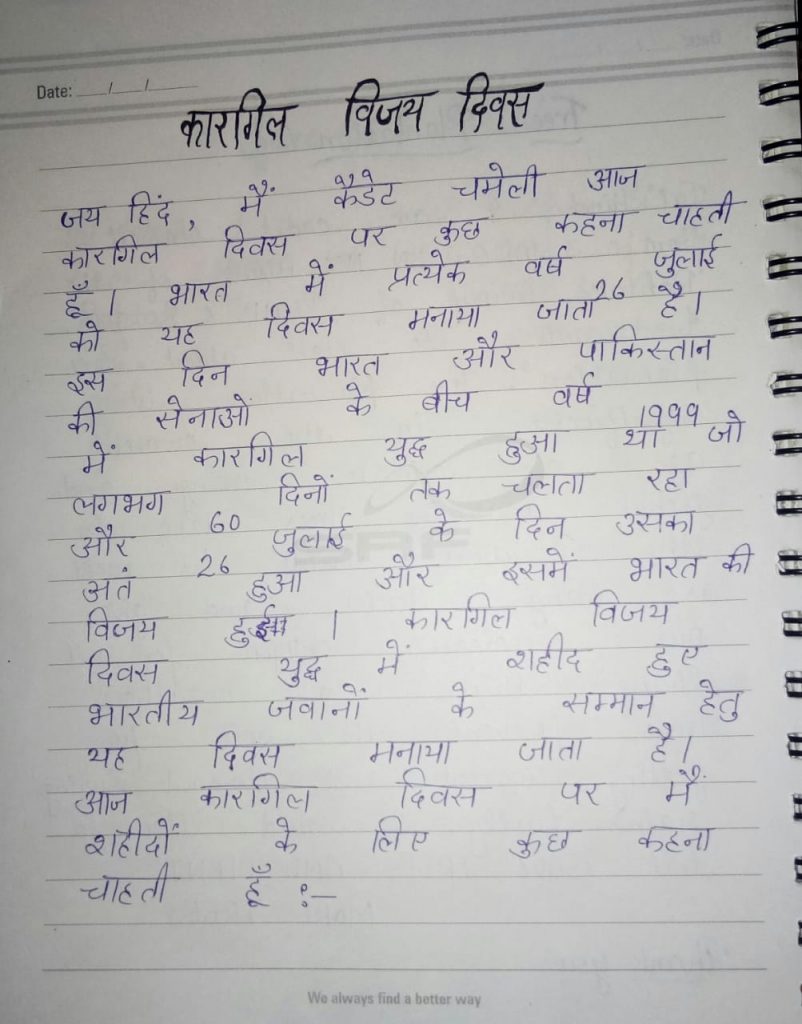 Date: / /
कारगिल विजय दिवस
जय हिंद, मैं कैडेट चमेली आज
कारगिल दिवस पर कुछ कहना चाहती
हूँ। भारत में प्रत्येक वर्ष जुलाई
को यह दिवस मनाया जाता 26 है।
इस दिन भारत और पाकिस्तान
की सेनाओं के बीच वर्ष
में कारगिल युद्ध हुआ था 1999 जो
लगभग दिनों तक चलता रहा
और 60 जुलाई के दिन उसका
अतं 26 हुआ और इसमें भारत की
विजय हुई। कारगिल विजय
दिवस युद्ध में शहीद हुए
भारतीय जवानों के सम्मान हेतु
यह दिवस मनाया जाता है।
आज कारगिल दिवस पर मैं
शहीदों के लिए कुछ कहना
चाहती हूँ :-
SRF
We always find a better way